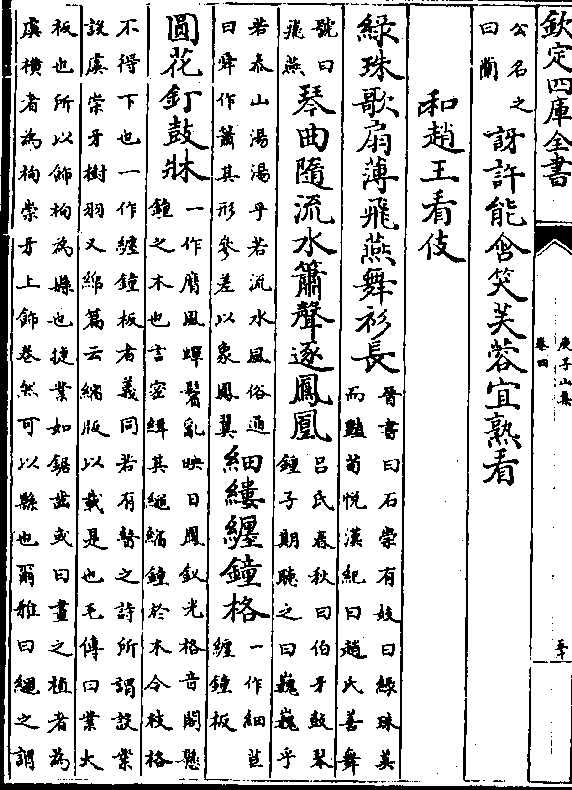 欽定四庫全書
庾子山集
卷四
公名之
曰蘭
訝許能含笑芙蓉宜熟看
和趙王看伎
綠珠歌扇薄飛燕舞衫長
晉書曰石崇有妓曰綠珠美
而豔荀悅漢紀曰趙氏善舞
號曰
飛燕
琴曲隨流水簫聲逐鳳凰
呂氏春秋曰伯牙鼓琴
鍾子期聽之曰巍巍乎
若泰山湯湯乎若流水風俗通
曰舜作簫其形參差以象鳳翼
細縷纏鐘格
一作細苣
纏鐘板
圓花釘鼓牀
一作膺風蟬鬢亂映日鳳釵光格音閣懸
鐘之木也言密緝其繩縮鐘於木令枝格
不得下也一作纏鐘板者義同若有瞽之詩所謂設業
設虡崇牙樹羽又緜篇云縮版以載是也毛傳曰業大
板也所以飾栒為縣也捷業如鋸齒或曰畫之植者為
虡橫者為栒崇牙上飾卷然可以縣也爾雅曰繩之謂